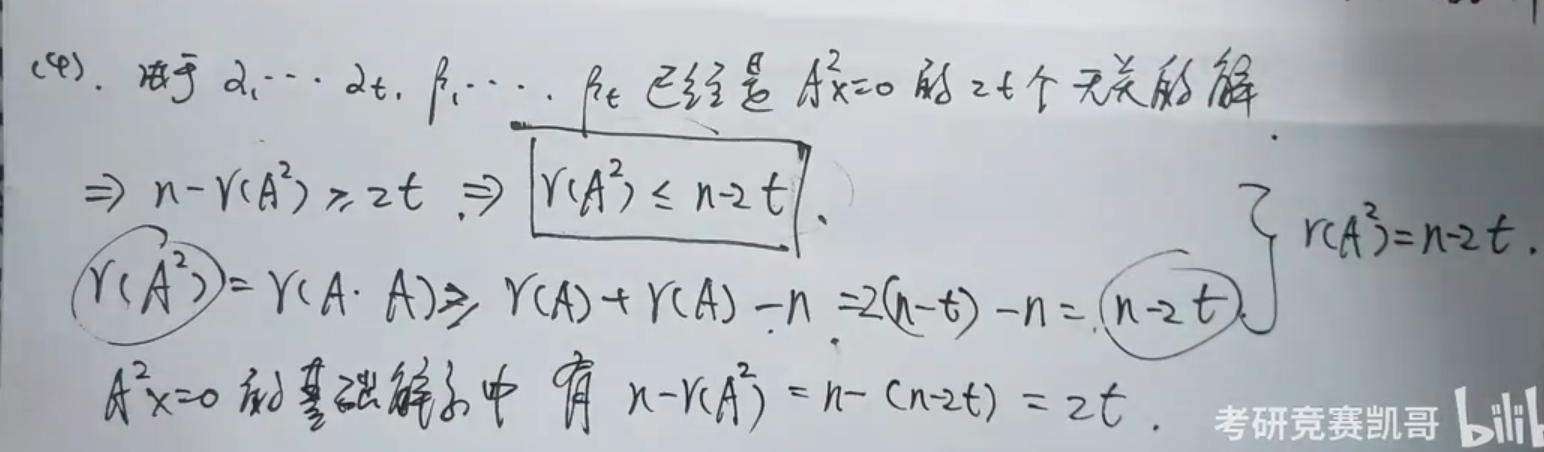 (4). 由于 α₁⋯αt, β₁⋯⋯, βt 已经是 A²x=0 的 2t个 无关的解.
⇒ n-r(A²)≥2t ⇒ r(A²)≤n-2t.
r(A²)=r(A·A)≥r(A)+r(A)-n=2(n-t)-n=n-2t.
} r(A²)=n-2t.
A²x=0 的基础解系中 有 n-r(A²)=n-(n-2t)=2t.
考研竞赛凯哥 bilib